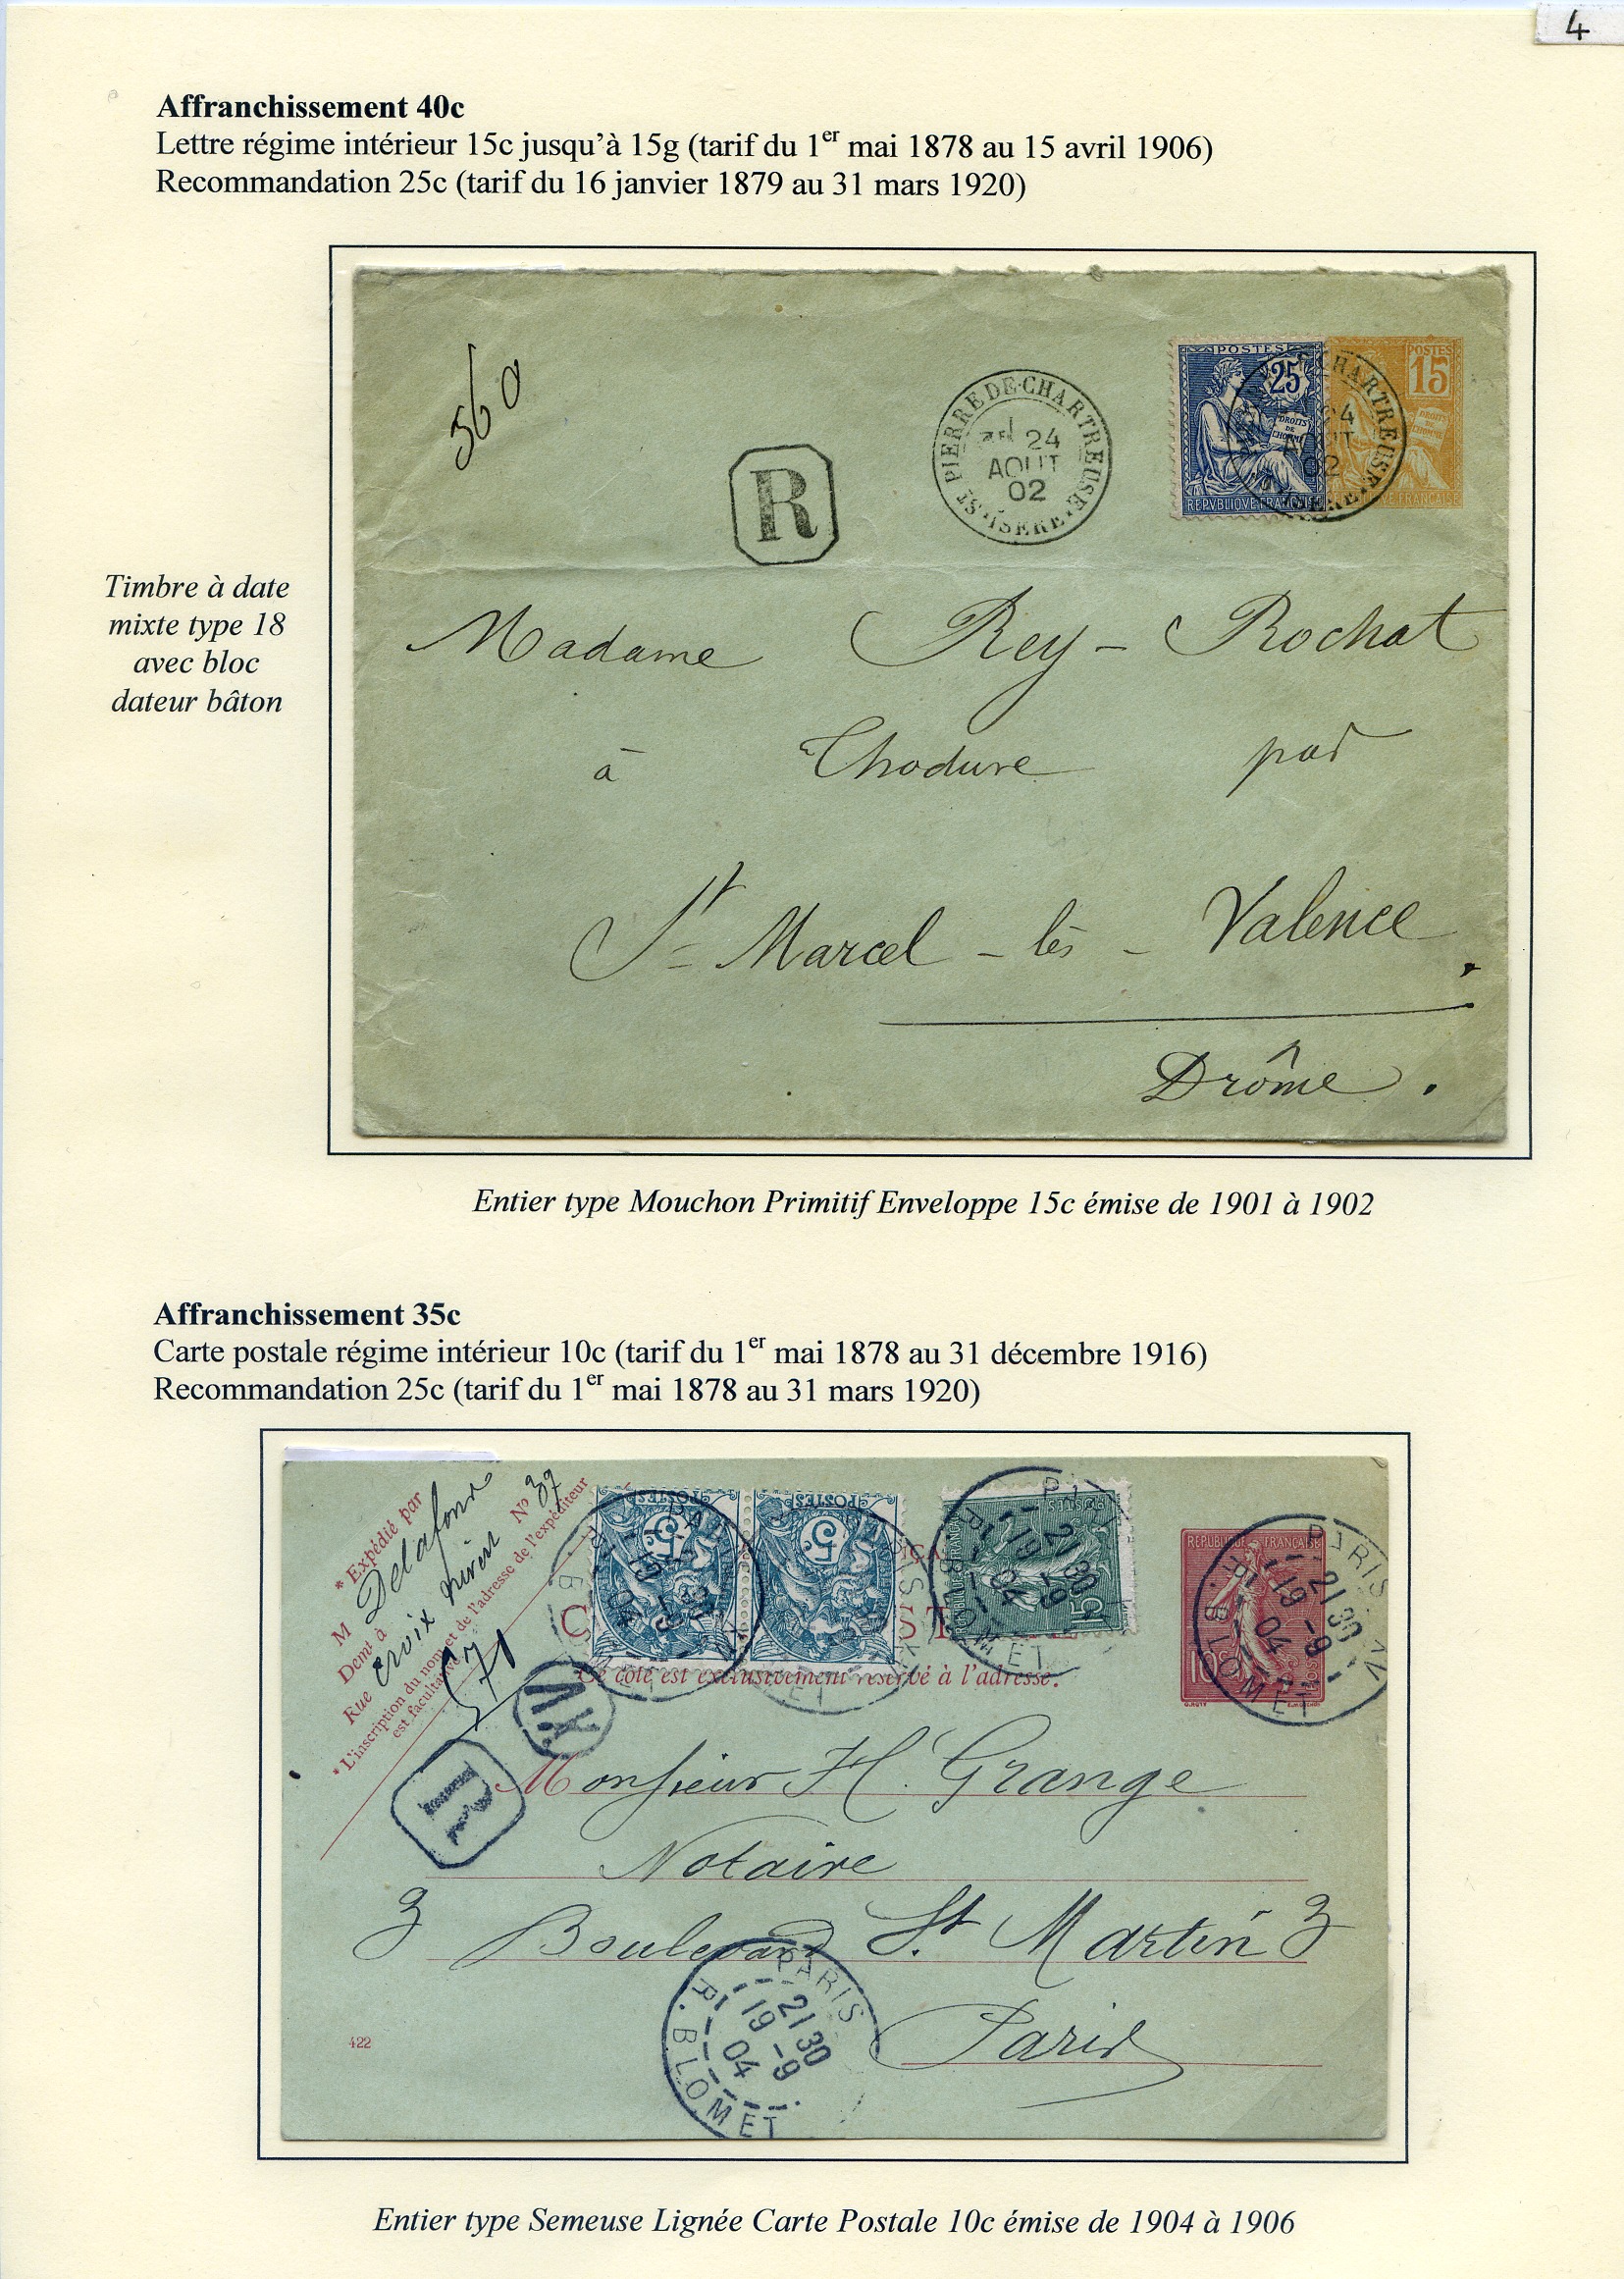 4
Affranchissement 40c
Lettre régime intérieur 15c jusqu'à 15g (tarif du 1er mai 1878 au 15 avril 1906)
Recommandation 25c (tarif du 16 janvier 1879 au 31 mars 1920)
Timbre à date
mixte type 18
avec bloc
dateur bâton
360
R
ST PIERRE-DE-CHARTREUSE ISERE
24
AOUT
02
POSTES
25
DROITS
DE
L'HOMME
REPVBLIQVE FRANÇAISE
POSTES
15
Madame Rey-Rochat
à Thodure par
St Marcel-lès-Valence
Drôme.
Entier type Mouchon Primitif Enveloppe 15c émise de 1901 à 1902
Affranchissement 35c
Carte postale régime intérieur 10c (tarif du 1er mai 1878 au 31 décembre 1916)
Recommandation 25c (tarif du 1er mai 1878 au 31 mars 1920)
* Expédié par
M Delafond
Demt à
Rue Croix Nivert No 37
* L'inscription du nom et de l'adresse de l'expéditeur
est facultative
71
R
POSTES
5c
POSTES
5c
15c
REPUBLIQUE FRANÇAISE
10c
PARIS XV
21 30
19 -9
04
R. BLOMET
Ce côté est exclusivement réservé à l'adresse.
Monsieur H. Grange
Notaire
3 Boulevard St Martin 3
Paris
PARIS
21 30
19 -9
04
R. BLOMET
422
Entier type Semeuse Lignée Carte Postale 10c émise de 1904 à 1906